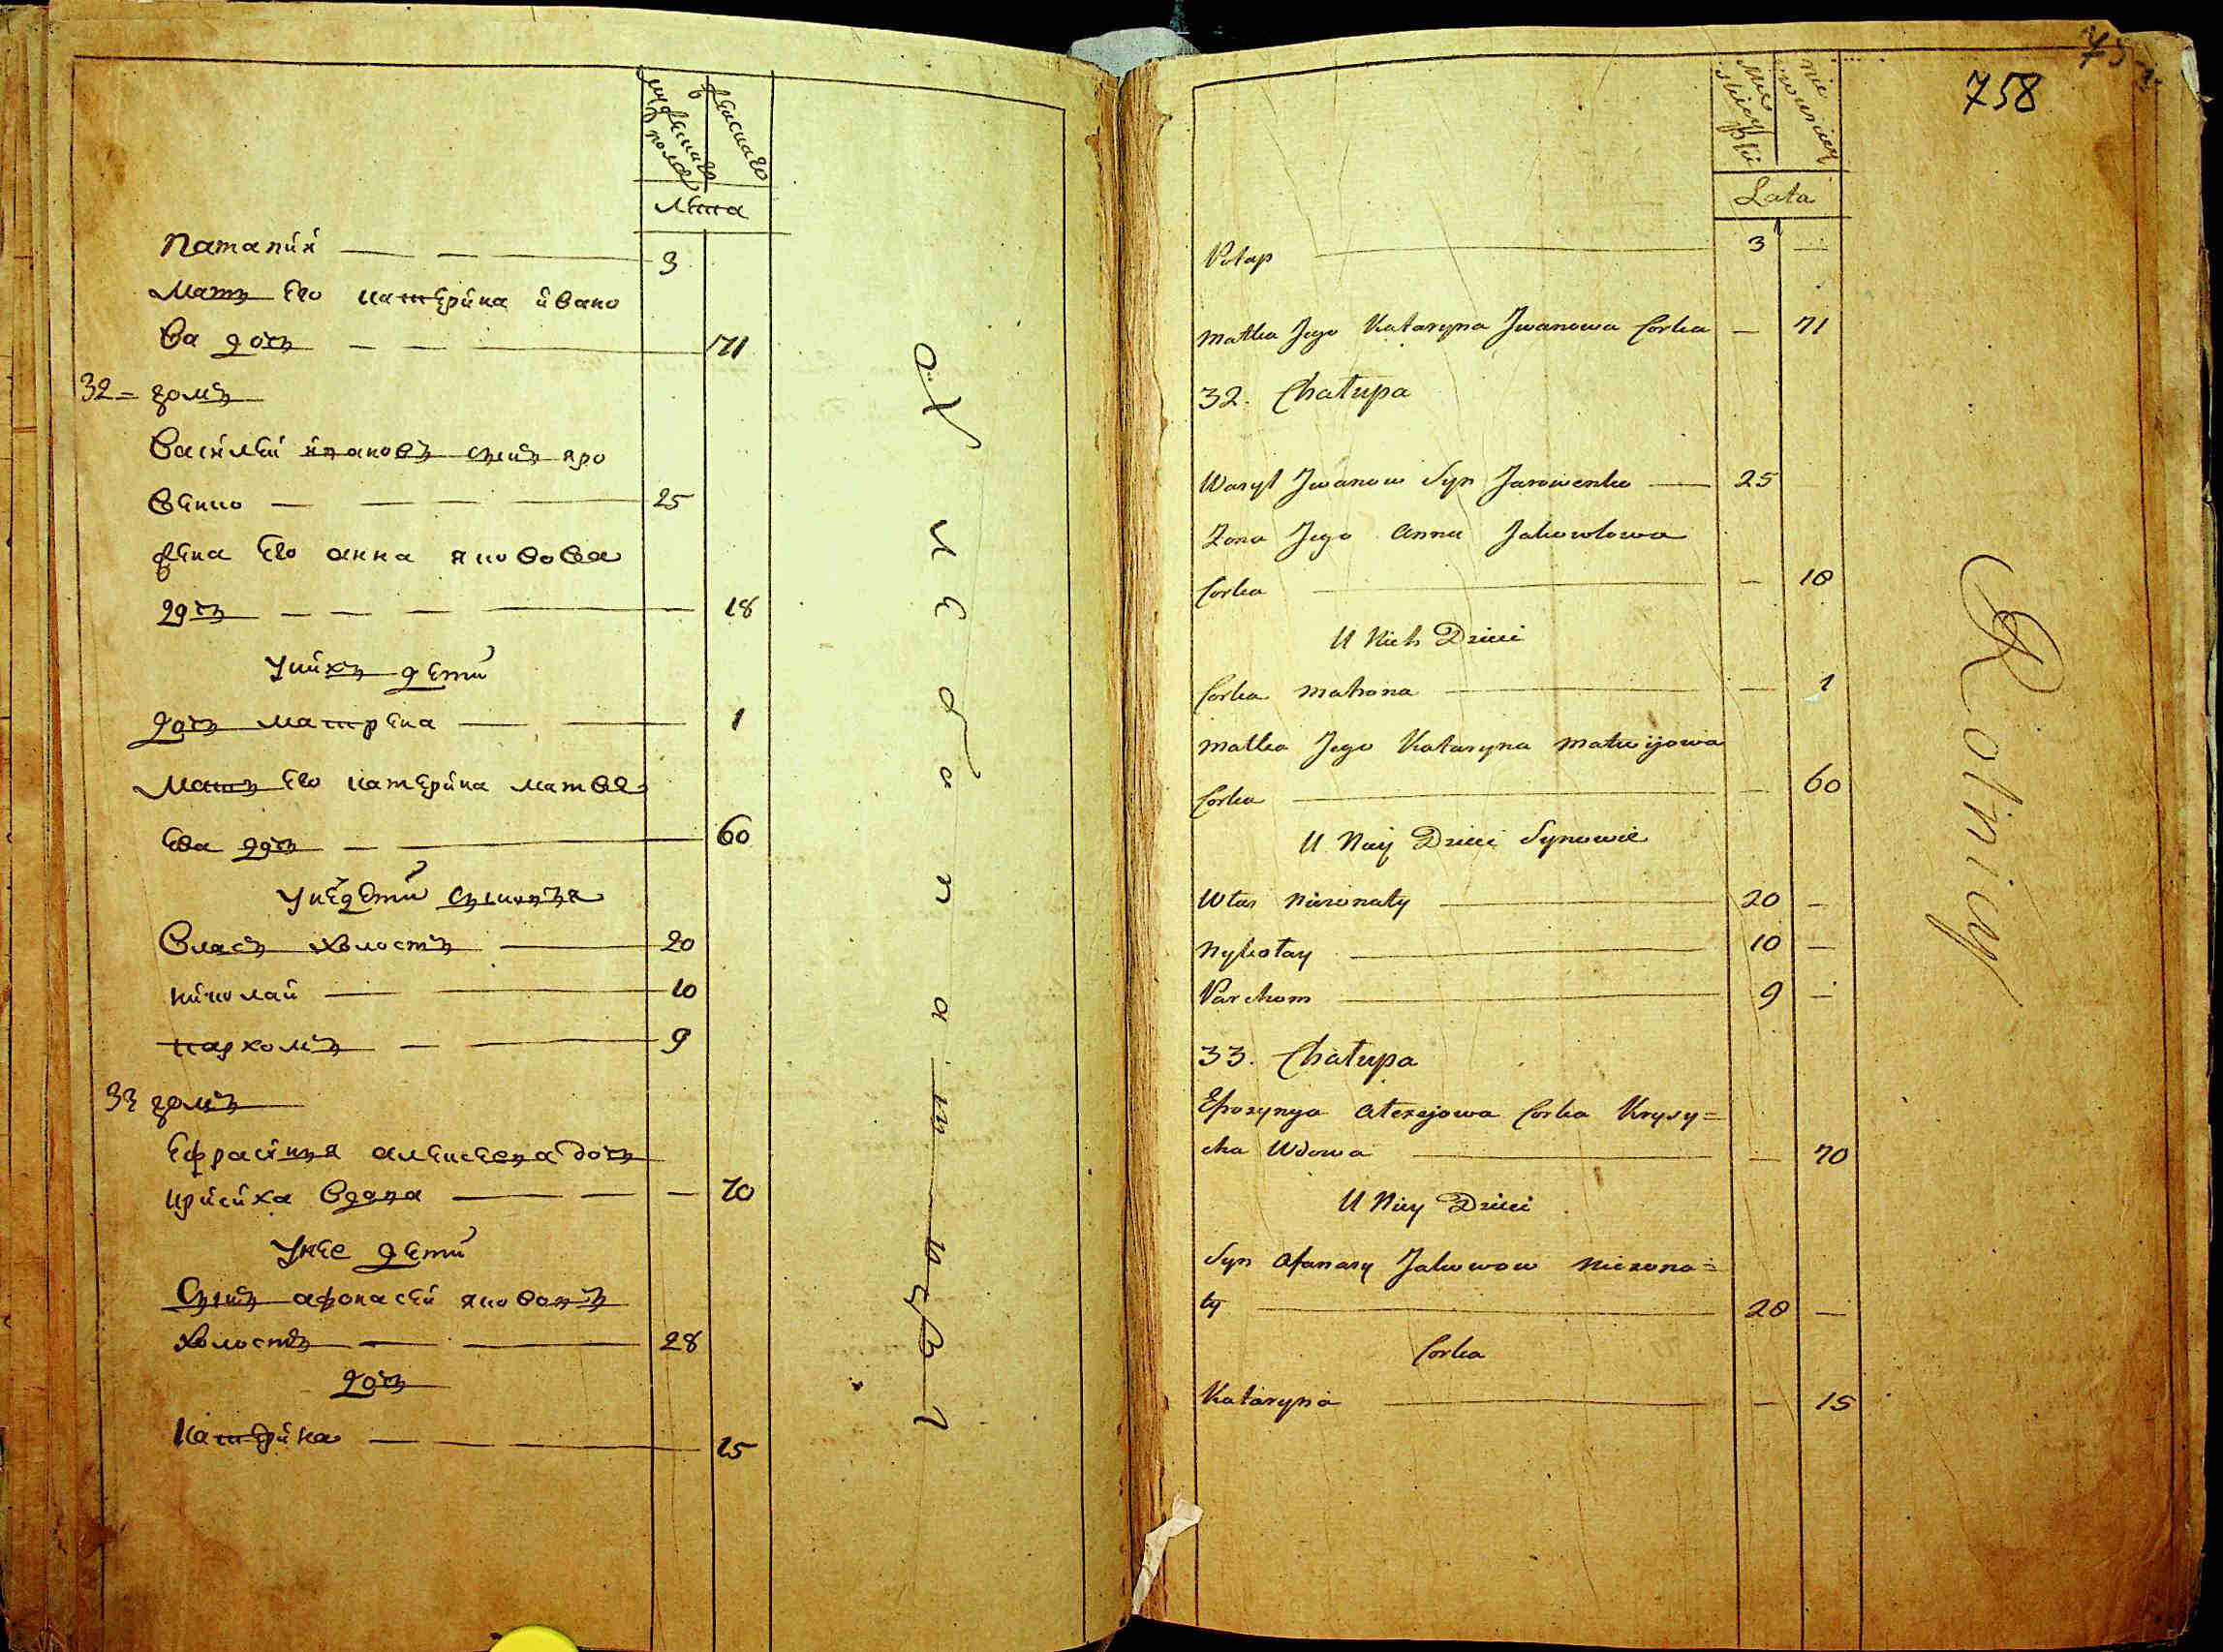 мужеска
пола
женска
лета
Патапий — 3
Мать его катерина ивано
ва дочь — 71
32 = домъ
Василей ивановъ сынъ яро
венко — 25
жена его анна яковова
дочь — 18
У них дети
дочь матрена — 1
Мать его катерина матве
ева дочь — 60
У нее дети сыновья
Власъ холостъ — 20
николай — 10
пархомъ — 9
33 домъ
ефрасиния алексеева дочь
крисиха вдова — 70
У нее дети
Сынъ афонасей яковов
холостъ — 28
дочь
Катерина — 15
758
Męskiey
płci
nie
wiesciey
Lata
Potap — 3 —
Matka Jego Kataryna Jwanowa Corka — 71
32. Chałupa
Wasyl Jwanow Syn Jarowenko — 25
Zona Jego Anna Jakowlowa
Corka — 18
U Nich Dzieci
Corka Matrona — 1
Matka Jego Kataryna Matwijowa
Corka — 60
U Niey Dzieci Synowie
Własnieżonaty — 20 —
Nykołay — 10 —
Parchom — 9 —
33. Chałupa
Efrozynya Alexejowa Corka Krysy=
cha Wdowa — 70
U Niey Dzieci
Syn Afanasy Jakowow Nieżona=
ty — 28 —
Corka
Kataryna — 15
Rolnicy